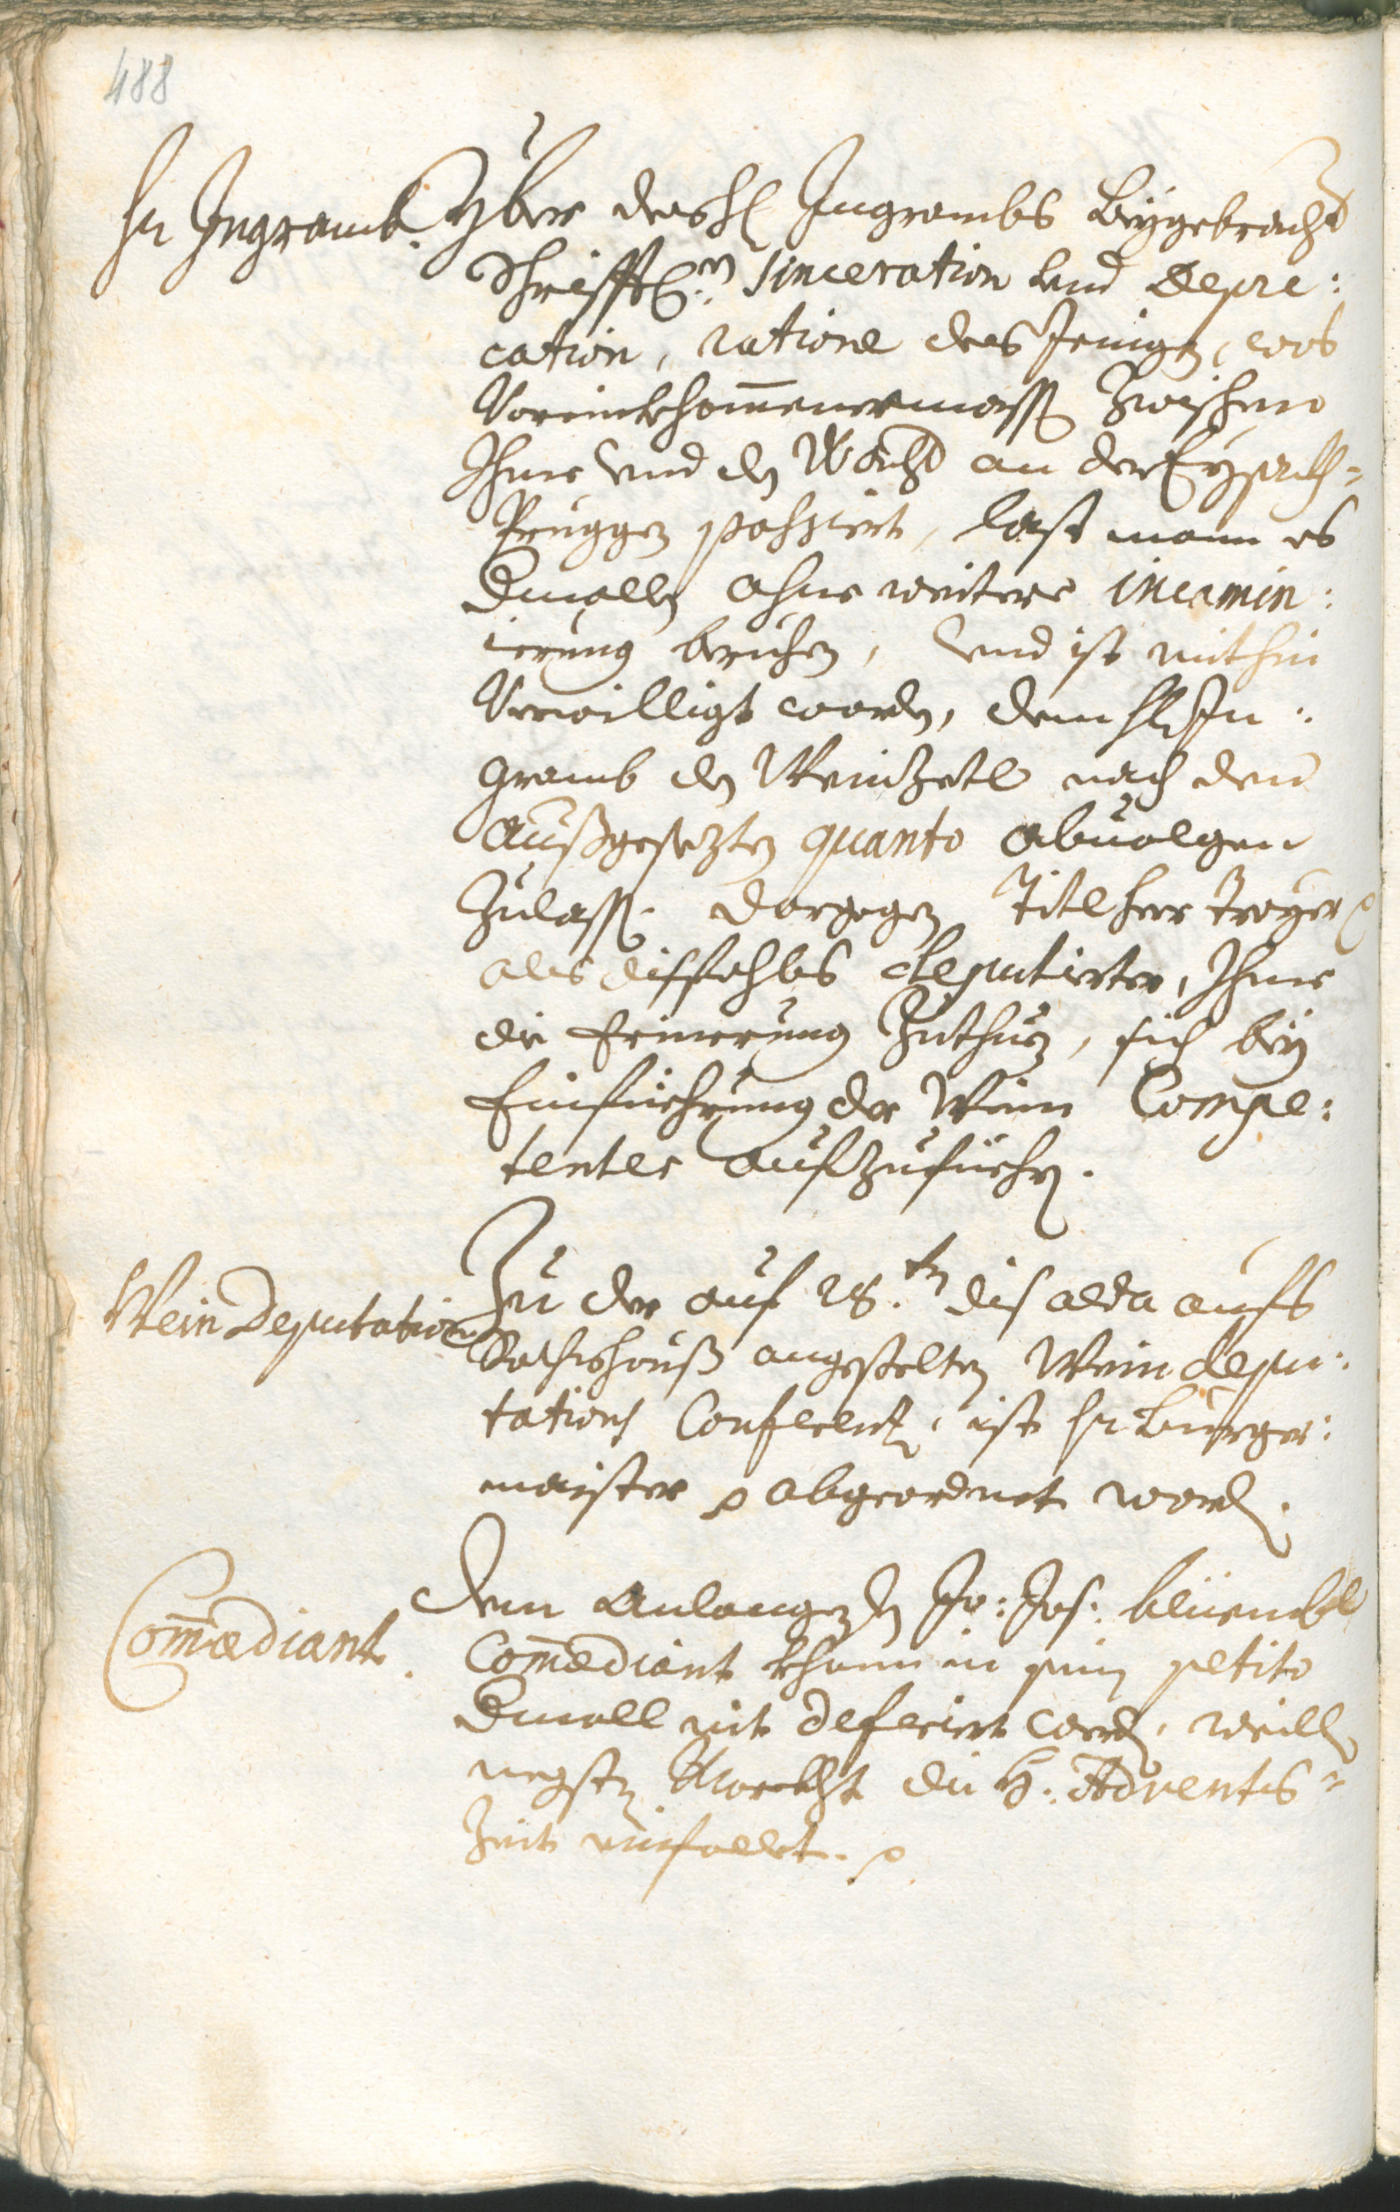 488
Hr Ingramb.
Yber des H Ingrambs beygebracht
Schrifftl:n sinceration und depre:
cation, ratione des Jenigen, was
Voreinkhommenermass zwischen
Ihme und den Wacht an der Eysackh-
Pruggen passiert, last mann es
dmallen ohne weitere incamin:
ierung beruhen, und ist mithin
Verwilligt worden, dem H In:
gramb den Weinzetl nach dem
außgesezten quanto abuolgen
zulassen. dargegen Titl herr Troyer
als disfahls deputierter, Ihme
die Erinerung zuthuen, sich bey
Einfüehrung der Wein Compe:
tenter aufzufüehren.
Wein Deputation
Zu der auf 28.ten dis alda aufs
Rathshauß angestelten Wein depu:
tations Conferenz, ist Hr Burger:
maister abgeordnet worden.
Comœdiant.
Dem Anlangenden Jo: Jos: blüembl
Comœdiant khann in sein petito
dmall nit deferiert werden, weillen
negsten Marckht die H: Advents-
zeit einfallet.